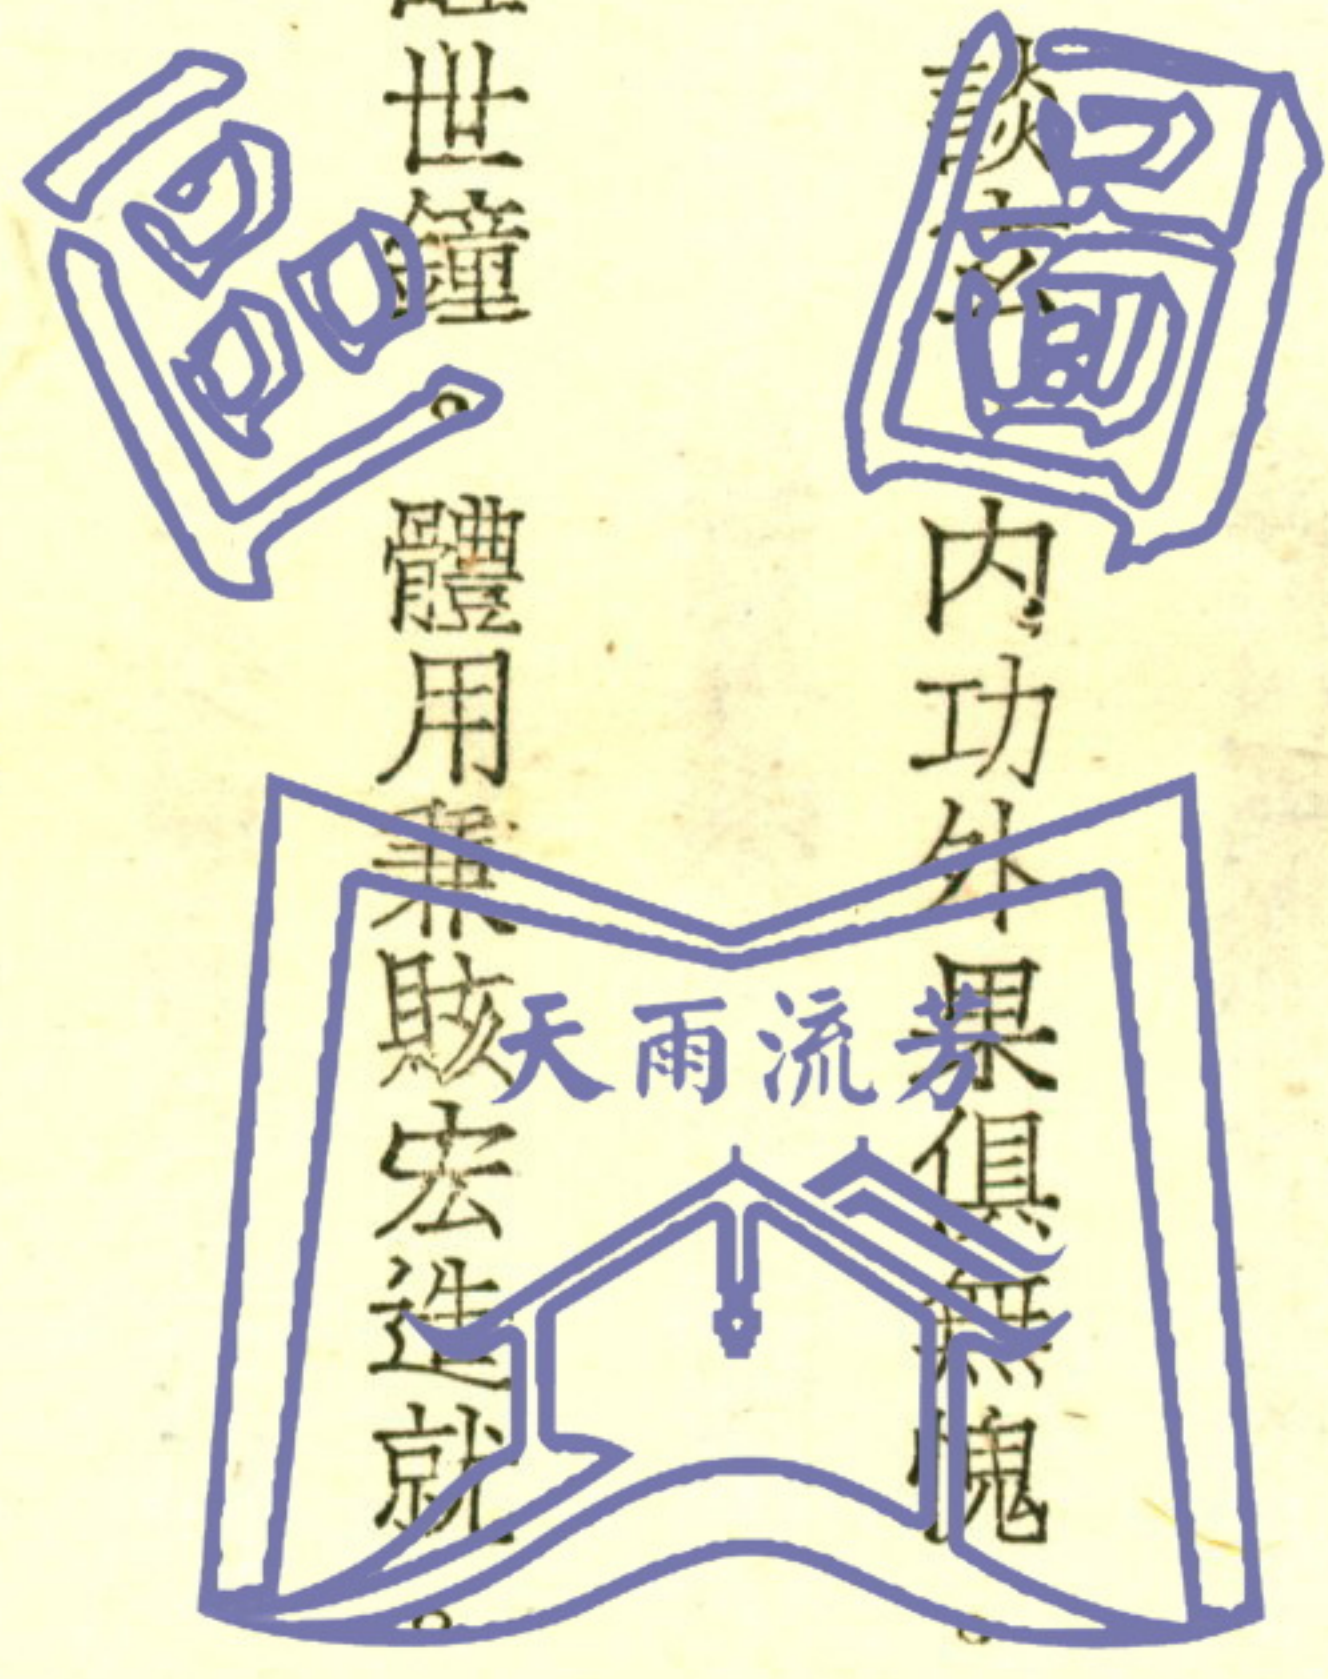 談玄
内功外果俱無愧。
世鐘。
體用兼賅宏造就。
區圖
天雨流芳